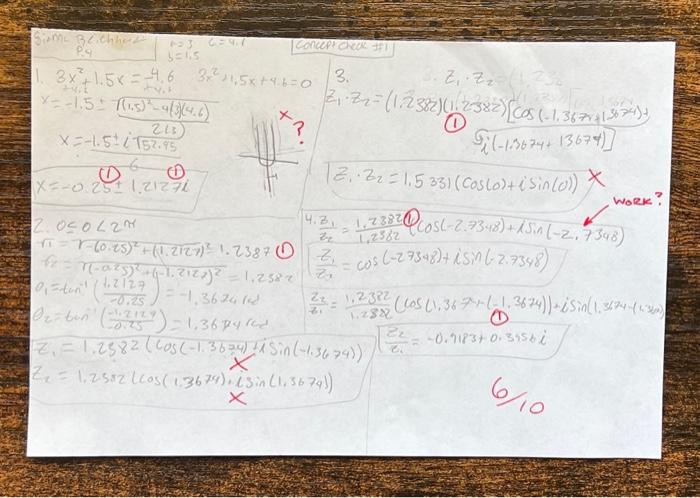 P.4
a=3
c=4.6
b=1.5
Concept Check #1
1. 3x²+1.5x=-4.6
+4.6 +4.6
3x²+1.5x+4.6=0
x=-1.5±√(1.5)²-4(3)(4.6)
2(3)
x=-1.5±i√52.95
6
x=-0.25±1.2127i
① ①
x ?
2. 0≤θ<2π
r₁=√(-0.25)²+(1.2127)² 1.2382 ①
r₂=√(-0.25)²+(-1.2127)² =1.2382
θ₁=tan⁻¹(1.2127/-0.25)=-1.3674 rad
θ₂=tan⁻¹(-1.2127/-0.25)=1.3674 rad
z₁=1.2382(cos(-1.3674)+isin(-1.3674))
x
z₂=1.2382(cos(1.3674)+isin(1.3674))
x
3.
z₁·z₂=(1.2382)(1.2382)[cos(-1.3674+1.3674)+
①
i(-1.3674+1.3674)]
z₁·z₂=1.5331(cos(0)+isin(0)) x
WORK?
4. z₁/z₂=1.2382/1.2382 (cos(-2.7348)+isin(-2.7348)
①
z₁/z₂=cos(-2.7348)+isin(-2.7348)
z₂/z₁=1.2382/1.2382 (cos(1.3674-(-1.3674))+isin(1.3674-(-1.3674)
①
z₂/z₁=-0.9183+0.3956i
6/10